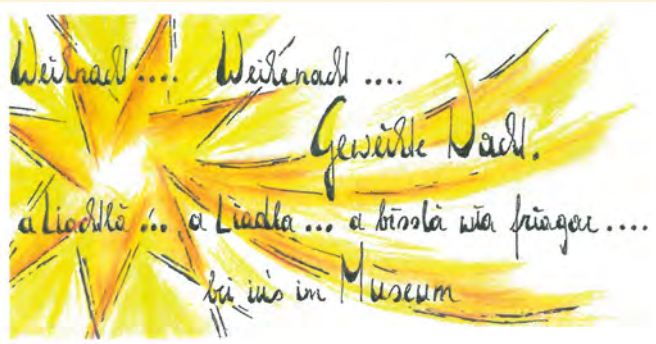 Weihnacht .... Weihenacht ....
Geweihte Nacht.
a Liachtla ... a Liadla ... a bissla wia friagar ....
bei üs im Museum